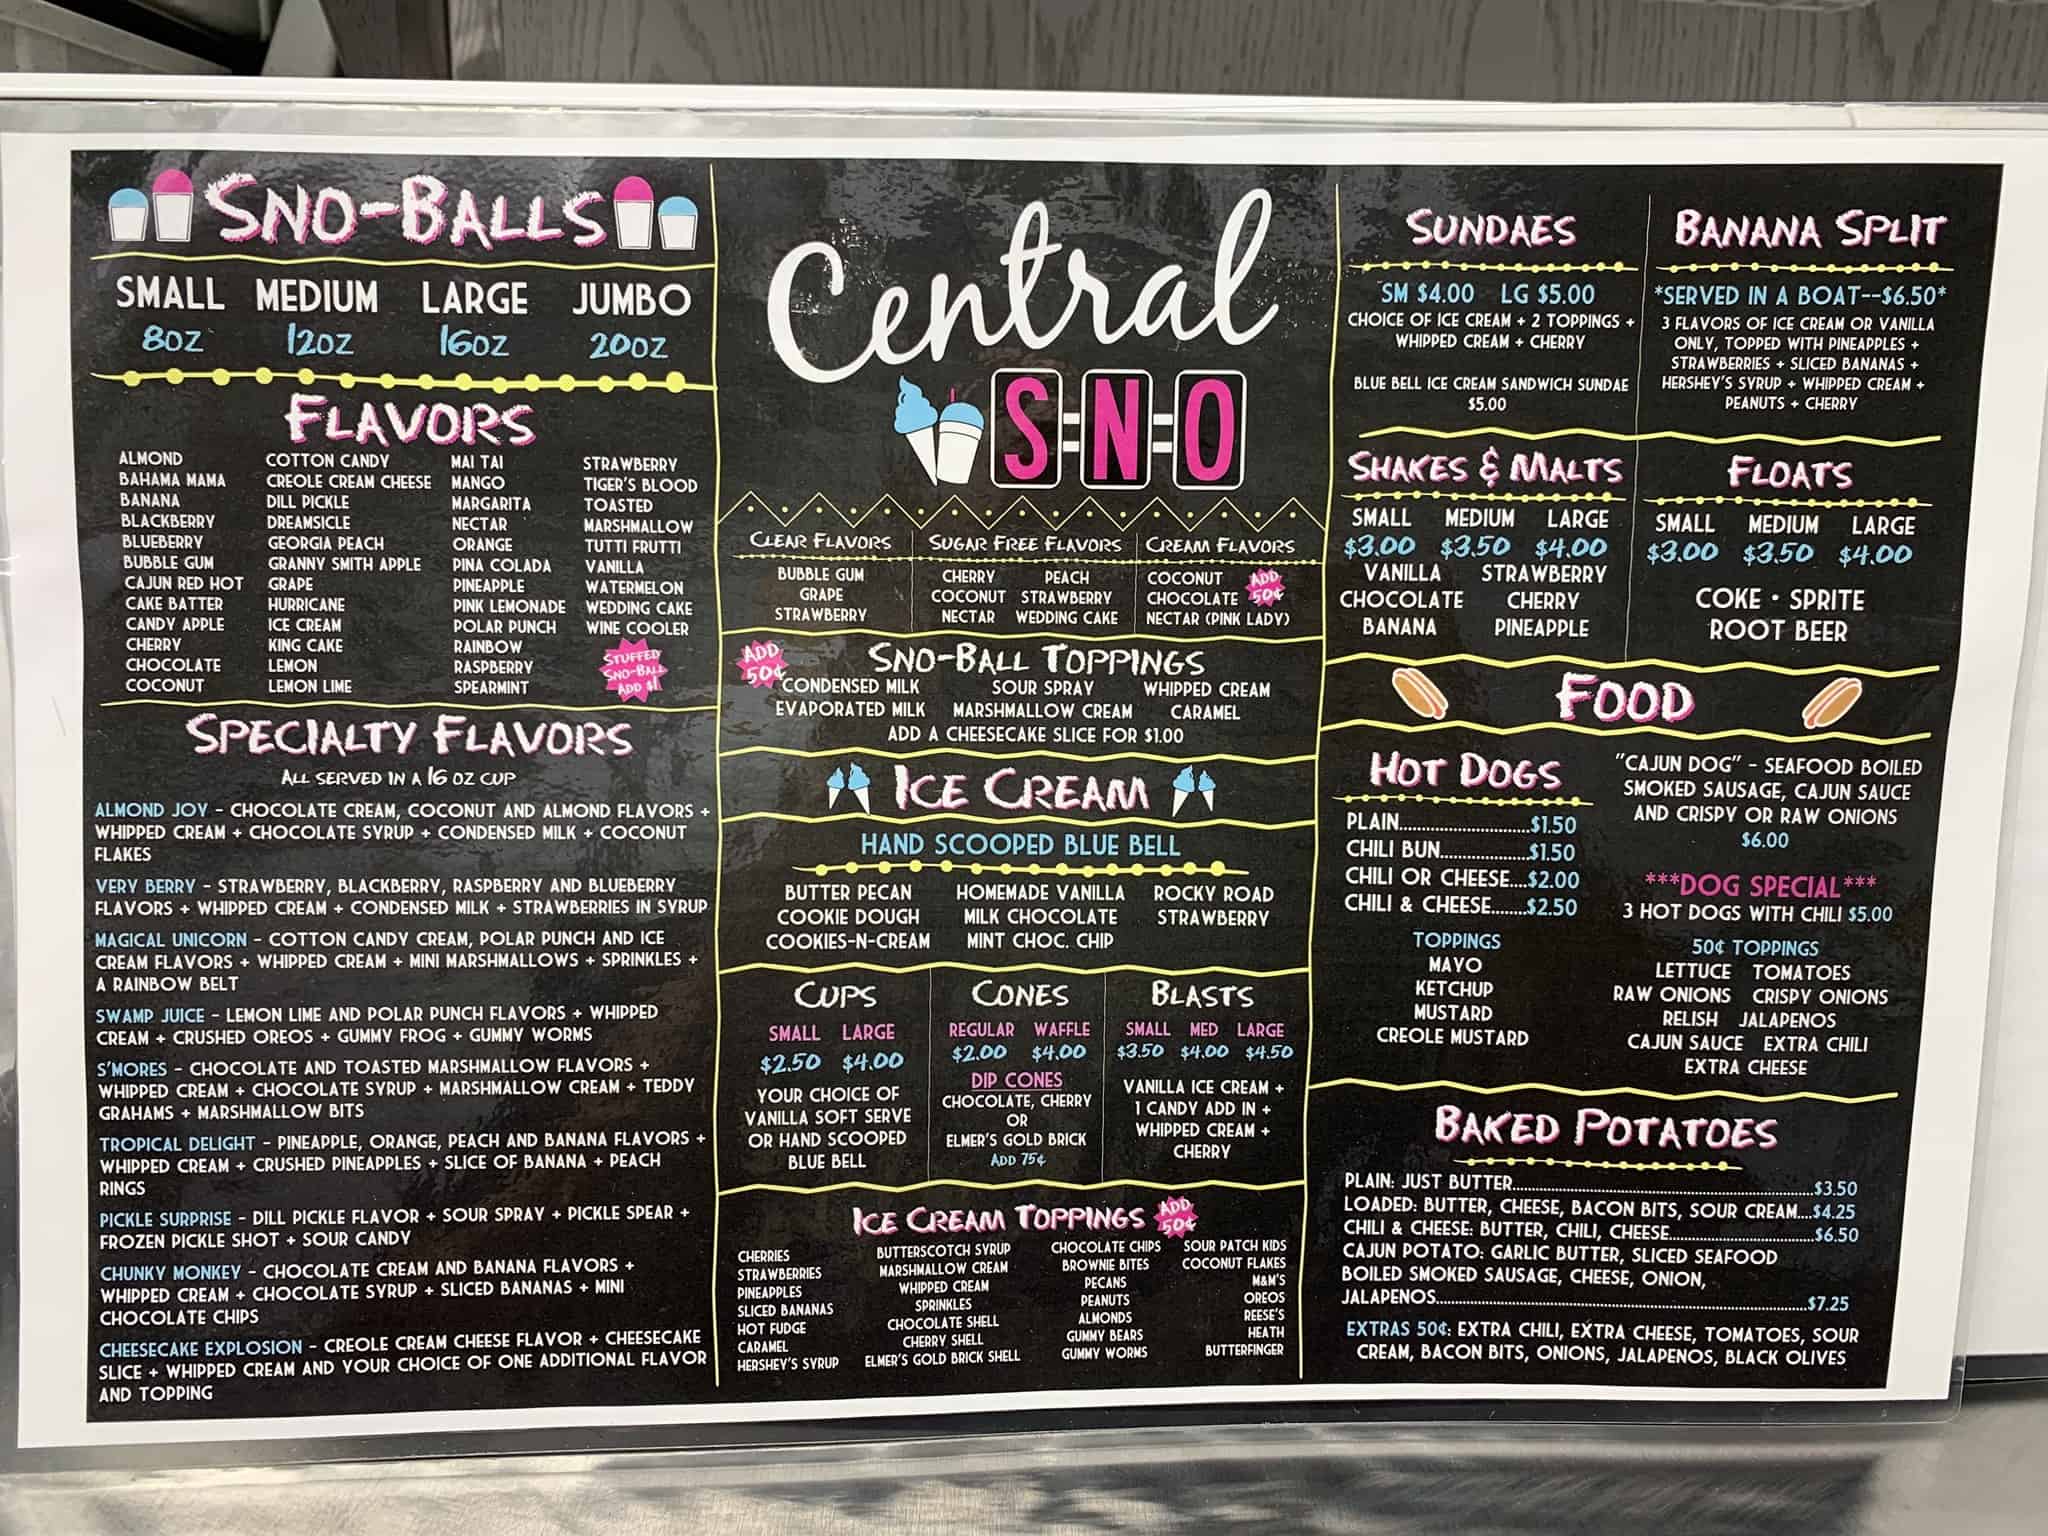 SNO-BALLS
SMALL MEDIUM LARGE JUMBO
8OZ 12OZ 16OZ 20OZ
FLAVORS
ALMOND
BAHAMA MAMA
BANANA
BLACKBERRY
BLUEBERRY
BUBBLE GUM
CAJUN RED HOT
CAKE BATTER
CANDY APPLE
CHERRY
CHOCOLATE
COCONUT
COTTON CANDY
CREOLE CREAM CHEESE
DILL PICKLE
DREAMSICLE
GEORGIA PEACH
GRANNY SMITH APPLE
GRAPE
HURRICANE
ICE CREAM
KING CAKE
LEMON
LEMON LIME
MAI TAI
MANGO
MARGARITA
NECTAR
ORANGE
PINA COLADA
PINEAPPLE
PINK LEMONADE
POLAR PUNCH
RAINBOW
RASPBERRY
SPEARMINT
STRAWBERRY
TIGER'S BLOOD
TOASTED
MARSHMALLOW
TUTTI FRUTTI
VANILLA
WATERMELON
WEDDING CAKE
WINE COOLER
STUFFED
SNO-BALL
ADD $1
SPECIALTY FLAVORS
ALL SERVED IN A 16 OZ CUP
ALMOND JOY - CHOCOLATE CREAM, COCONUT AND ALMOND FLAVORS +
WHIPPED CREAM + CHOCOLATE SYRUP + CONDENSED MILK + COCONUT
FLAKES
VERY BERRY - STRAWBERRY, BLACKBERRY, RASPBERRY AND BLUEBERRY
FLAVORS + WHIPPED CREAM + CONDENSED MILK + STRAWBERRIES IN SYRUP
MAGICAL UNICORN - COTTON CANDY CREAM, POLAR PUNCH AND ICE
CREAM FLAVORS + WHIPPED CREAM + MINI MARSHMALLOWS + SPRINKLES +
A RAINBOW BELT
SWAMP JUICE - LEMON LIME AND POLAR PUNCH FLAVORS + WHIPPED
CREAM + CRUSHED OREOS + GUMMY FROG + GUMMY WORMS
S'MORES - CHOCOLATE AND TOASTED MARSHMALLOW FLAVORS +
WHIPPED CREAM + CHOCOLATE SYRUP + MARSHMALLOW CREAM + TEDDY
GRAHAMS + MARSHMALLOW BITS
TROPICAL DELIGHT - PINEAPPLE, ORANGE, PEACH AND BANANA FLAVORS +
WHIPPED CREAM + CRUSHED PINEAPPLES + SLICE OF BANANA + PEACH
RINGS
PICKLE SURPRISE - DILL PICKLE FLAVOR + SOUR SPRAY + PICKLE SPEAR +
FROZEN PICKLE SHOT + SOUR CANDY
CHUNKY MONKEY - CHOCOLATE CREAM AND BANANA FLAVORS +
WHIPPED CREAM + CHOCOLATE SYRUP + SLICED BANANAS + MINI
CHOCOLATE CHIPS
CHEESECAKE EXPLOSION - CREOLE CREAM CHEESE FLAVOR + CHEESECAKE
SLICE + WHIPPED CREAM AND YOUR CHOICE OF ONE ADDITIONAL FLAVOR
AND TOPPING
Central
S-N-O
CLEAR FLAVORS
BUBBLE GUM
GRAPE
STRAWBERRY
SUGAR FREE FLAVORS
CHERRY PEACH
COCONUT STRAWBERRY
NECTAR WEDDING CAKE
CREAM FLAVORS
COCONUT
CHOCOLATE
NECTAR (PINK LADY)
ADD
50¢
ADD
50¢
SNO-BALL TOPPINGS
CONDENSED MILK SOUR SPRAY WHIPPED CREAM
EVAPORATED MILK MARSHMALLOW CREAM CARAMEL
ADD A CHEESECAKE SLICE FOR $1.00
ICE CREAM
HAND SCOOPED BLUE BELL
BUTTER PECAN HOMEMADE VANILLA ROCKY ROAD
COOKIE DOUGH MILK CHOCOLATE STRAWBERRY
COOKIES-N-CREAM MINT CHOC. CHIP
CUPS
SMALL LARGE
$2.50 $4.00
YOUR CHOICE OF
VANILLA SOFT SERVE
OR HAND SCOOPED
BLUE BELL
CONES
REGULAR WAFFLE
$2.00 $4.00
DIP CONES
CHOCOLATE, CHERRY
OR
ELMER'S GOLD BRICK
ADD 75¢
BLASTS
SMALL MED LARGE
$3.50 $4.00 $4.50
VANILLA ICE CREAM +
1 CANDY ADD IN +
WHIPPED CREAM +
CHERRY
ICE CREAM TOPPINGS
ADD
50¢
CHERRIES
STRAWBERRIES
PINEAPPLES
SLICED BANANAS
HOT FUDGE
CARAMEL
HERSHEY'S SYRUP
BUTTERSCOTCH SYRUP
MARSHMALLOW CREAM
WHIPPED CREAM
SPRINKLES
CHOCOLATE SHELL
CHERRY SHELL
ELMER'S GOLD BRICK SHELL
CHOCOLATE CHIPS
BROWNIE BITES
PECANS
PEANUTS
ALMONDS
GUMMY BEARS
GUMMY WORMS
SOUR PATCH KIDS
COCONUT FLAKES
M&M'S
OREOS
REESE'S
HEATH
BUTTERFINGER
SUNDAES
SM $4.00 LG $5.00
CHOICE OF ICE CREAM + 2 TOPPINGS +
WHIPPED CREAM + CHERRY
BLUE BELL ICE CREAM SANDWICH SUNDAE
$5.00
BANANA SPLIT
*SERVED IN A BOAT--$6.50*
3 FLAVORS OF ICE CREAM OR VANILLA
ONLY, TOPPED WITH PINEAPPLES +
STRAWBERRIES + SLICED BANANAS +
HERSHEY'S SYRUP + WHIPPED CREAM +
PEANUTS + CHERRY
SHAKES & MALTS
SMALL MEDIUM LARGE
$3.00 $3.50 $4.00
VANILLA STRAWBERRY
CHOCOLATE CHERRY
BANANA PINEAPPLE
FLOATS
SMALL MEDIUM LARGE
$3.00 $3.50 $4.00
COKE • SPRITE
ROOT BEER
FOOD
HOT DOGS
PLAIN..............................$1.50
CHILI BUN....................$1.50
CHILI OR CHEESE....$2.00
CHILI & CHEESE........$2.50
TOPPINGS
MAYO
KETCHUP
MUSTARD
CREOLE MUSTARD
"CAJUN DOG" - SEAFOOD BOILED
SMOKED SAUSAGE, CAJUN SAUCE
AND CRISPY OR RAW ONIONS
$6.00
***DOG SPECIAL***
3 HOT DOGS WITH CHILI $5.00
50¢ TOPPINGS
LETTUCE TOMATOES
RAW ONIONS CRISPY ONIONS
RELISH JALAPENOS
CAJUN SAUCE EXTRA CHILI
EXTRA CHEESE
BAKED POTATOES
PLAIN: JUST BUTTER..............................$3.50
LOADED: BUTTER, CHEESE, BACON BITS, SOUR CREAM....$4.25
CHILI & CHEESE: BUTTER, CHILI, CHEESE..............................$6.50
CAJUN POTATO: GARLIC BUTTER, SLICED SEAFOOD
BOILED SMOKED SAUSAGE, CHEESE, ONION,
JALAPENOS..............................$7.25
EXTRAS 50¢: EXTRA CHILI, EXTRA CHEESE, TOMATOES, SOUR
CREAM, BACON BITS, ONIONS, JALAPENOS, BLACK OLIVES